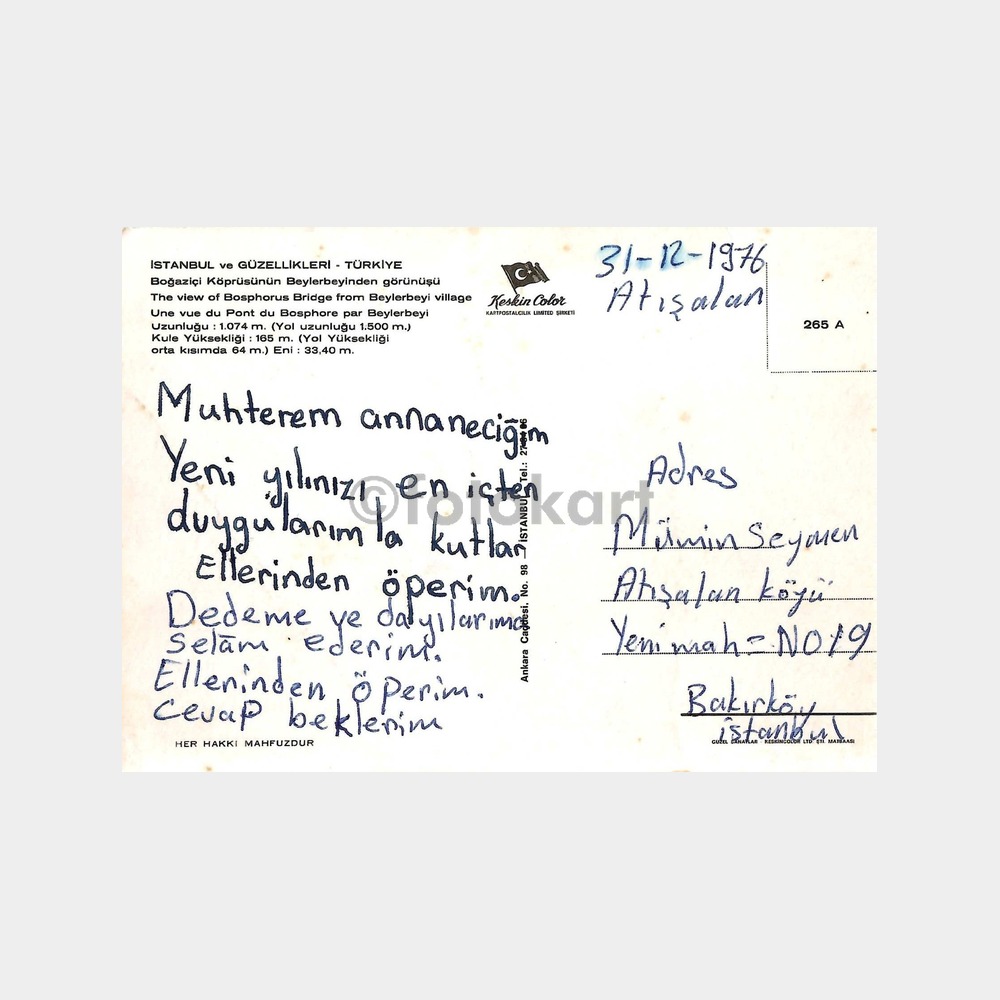 İSTANBUL ve GÜZELLİKLERİ - TÜRKİYE
Boğaziçi Köprüsünün Beylerbeyinden görünüşü
The view of Bosphorus Bridge from Beylerbeyi village
Une vue du Pont du Bosphore par Beylerbeyi
Uzunluğu : 1.074 m. (Yol uzunluğu 1.500 m.)
Kule Yüksekliği : 165 m. (Yol Yüksekliği
orta kısımda 64 m.) Eni : 33,40 m.
Keskin Color
KARTPOSTALCILIK LIMITED ŞİRKETİ
31-12-1976
Atışalan
265 A
Muhterem annaneciğim
Yeni yılınızı en içten
duygularımla kutlar
Ellerinden öperim.
Dedeme ve dayılarıma
selâm ederim.
Ellerinden öperim.
cevap beklerim
HER HAKKI MAHFUZDUR
Ankara Caddesi. No. 98 — İSTANBUL Tel.:
©fotokart
Adres
Mümin Seymen
Atışalan köyü
Yeni mah = NO 19
Bakırköy
istanbul
GÜZEL SANATLAR KESKİNCOLOR LTD ŞTİ. MATBAASI